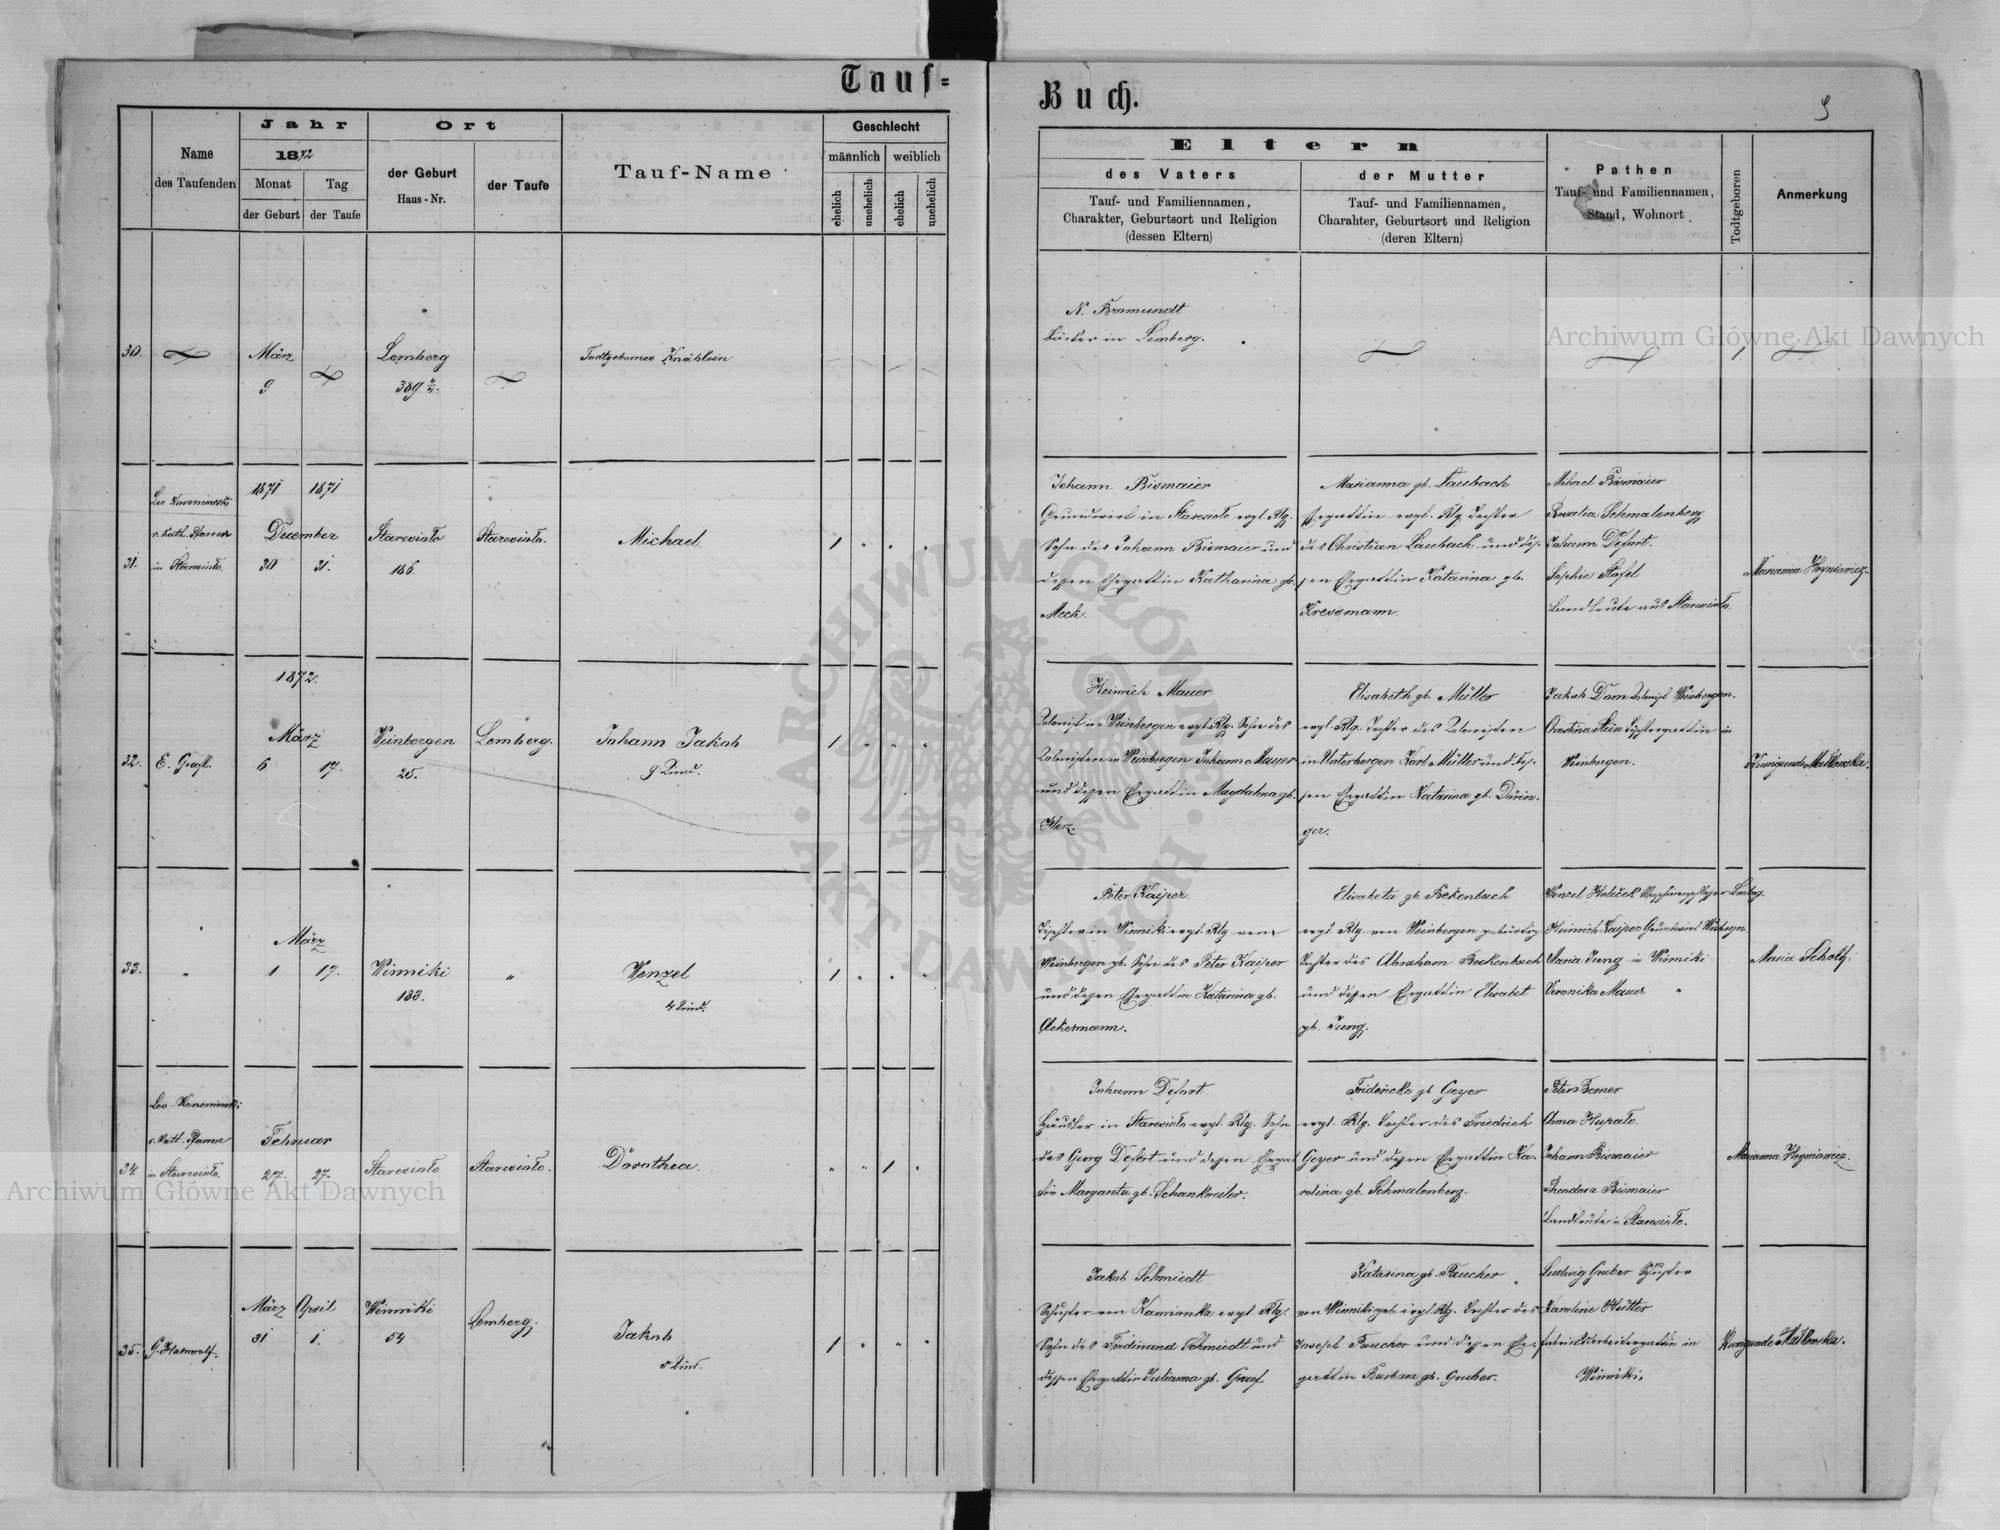 Tauf=
Buch.
9
Name
des Taufenden
Jahr
1872
Monat
Tag
der Geburt
der Taufe
Ort
der Geburt
Haus-Nr.
der Taufe
Tauf-Name
Geschlecht
männlich
weiblich
ehelich
unehelich
ehelich
unehelich
Eltern
des Vaters
Tauf- und Familiennamen,
Charakter, Geburtsort und Religion
(dessen Eltern)
der Mutter
Tauf- und Familiennamen,
Charahter, Geburtsort und Religion
(deren Eltern)
Pathen
Tauf- und Familiennamen,
Stand, Wohnort
Todtgeboren
Anmerkung
30.
März
9
Lemberg
389 4/4.
Todtgebornes Knäblein
N. Bramundt
in Lemberg.
1
31.
Leo
r. kath. Pfarrer
in Staresioło.
1871
1871
December
30
31.
Staresioło
186.
Staresioło.
Michael.
1
Johann Bismaier
Grundwirt in Staresioło evgl. Rlg.
Sohn des Johann Bismaier und
dessen Ehegattin Katharina gb.
Meck.
Marianna gb. Laubach
Ehegattin evgl. Rlg. Tochter
des Christian Laubach und des-
sen Ehegattin Katarina gb.
Kressmann.
Michael Bismaier
Rosalia Schmalenberg
Johann Defort.
Sophie
Landleute aus Staresioło.
Marianna Hryniewicz.
1872.
32.
E. Grafl.
März
6
17.
Weinbergen
25.
Lemberg.
Johann Jakob
9 Kind.
1
Heinrich Mauer
Kolonist in Weinbergen evgl. Rlg. Sohn des
Kolonisten in Weinbergen Johann Mauer
und dessen Ehegattin Magdalena gb.
Herz.
Elisabeth gb. Müller
evgl. Rlg. Tochter des Kolonisten
in Unterbergen Karl Müller und des-
sen Ehegattin Katarina gb. Dürin-
ger.
Jakob Dam Kolonist Weinbergen.
Christina Stein Tischlersgattin in
Weinbergen.
Kunigunde Małkowska.
33.
"
März
1
17.
Winniki
183.
"
Wenzel
4 Kind.
1
Peter Kaiper.
Tischler in Winniki evgl. Rlg. von
Weinbergen gb. Sohn des Peter Kaiper
und dessen Ehegattin Katarina gb.
Ackermann.
Elisabeta gb. Bekenbach
evgl. Rlg. von Weinbergen gebürtig
Tochter des Abraham Beckenbach
und dessen Ehegattin Elisabet
gb. Jung.
Wenzel
Heinrich Kaiper Grundwirt
Maria Jung in Winniki
Veronika Mauer "
Maria Scholtz.
34.
Leo
r. kath. Pfarrer
in Staresioło.
Februar
27.
27.
Staresioło
Staresioło.
Dorothea.
1
Johann Defort
Häusler in Staresioło evgl. Rlg. Sohn
des Georg Defort und dessen Ehegat
tin Margareta gb. Schankweiler.
Friedericke gb Geyer
evgl. Rlg. Tochter des Friedrich
Geyer und dessen Ehegattin Ka-
rolina gb. Schmalenberg.
Peter Berner
Anna
Johann Bismaier
Theodora Bismaier
Landleute in Staresioło.
Marianna Hryniewicz.
35.
März
April
31
1.
Winniki
54
Lemberg.
Jakob
Kind.
1
Jakob Schmiedt
Schuster von Kamionka evgl. Rlg.
Sohn des Ferdinand Schmiedt und
dessen Ehegattin Julianna gb. Graef
Katarina gb. Faucher
von Winniki geb. evgl. Rlg. Tochter des
Joseph Faucher und dessen Ehe-
gattin Barbara gb. Gruber.
Ludwig Gruber Schuster
Karoline Hütter
Fabriksarbeitersgattin in
Winniki.
Kunigunde Małkowska.
Archiwum Główne Akt Dawnych
Archiwum Główne Akt Dawnych
ARCHIWUM GŁÓWNE AKT DAWNYCH